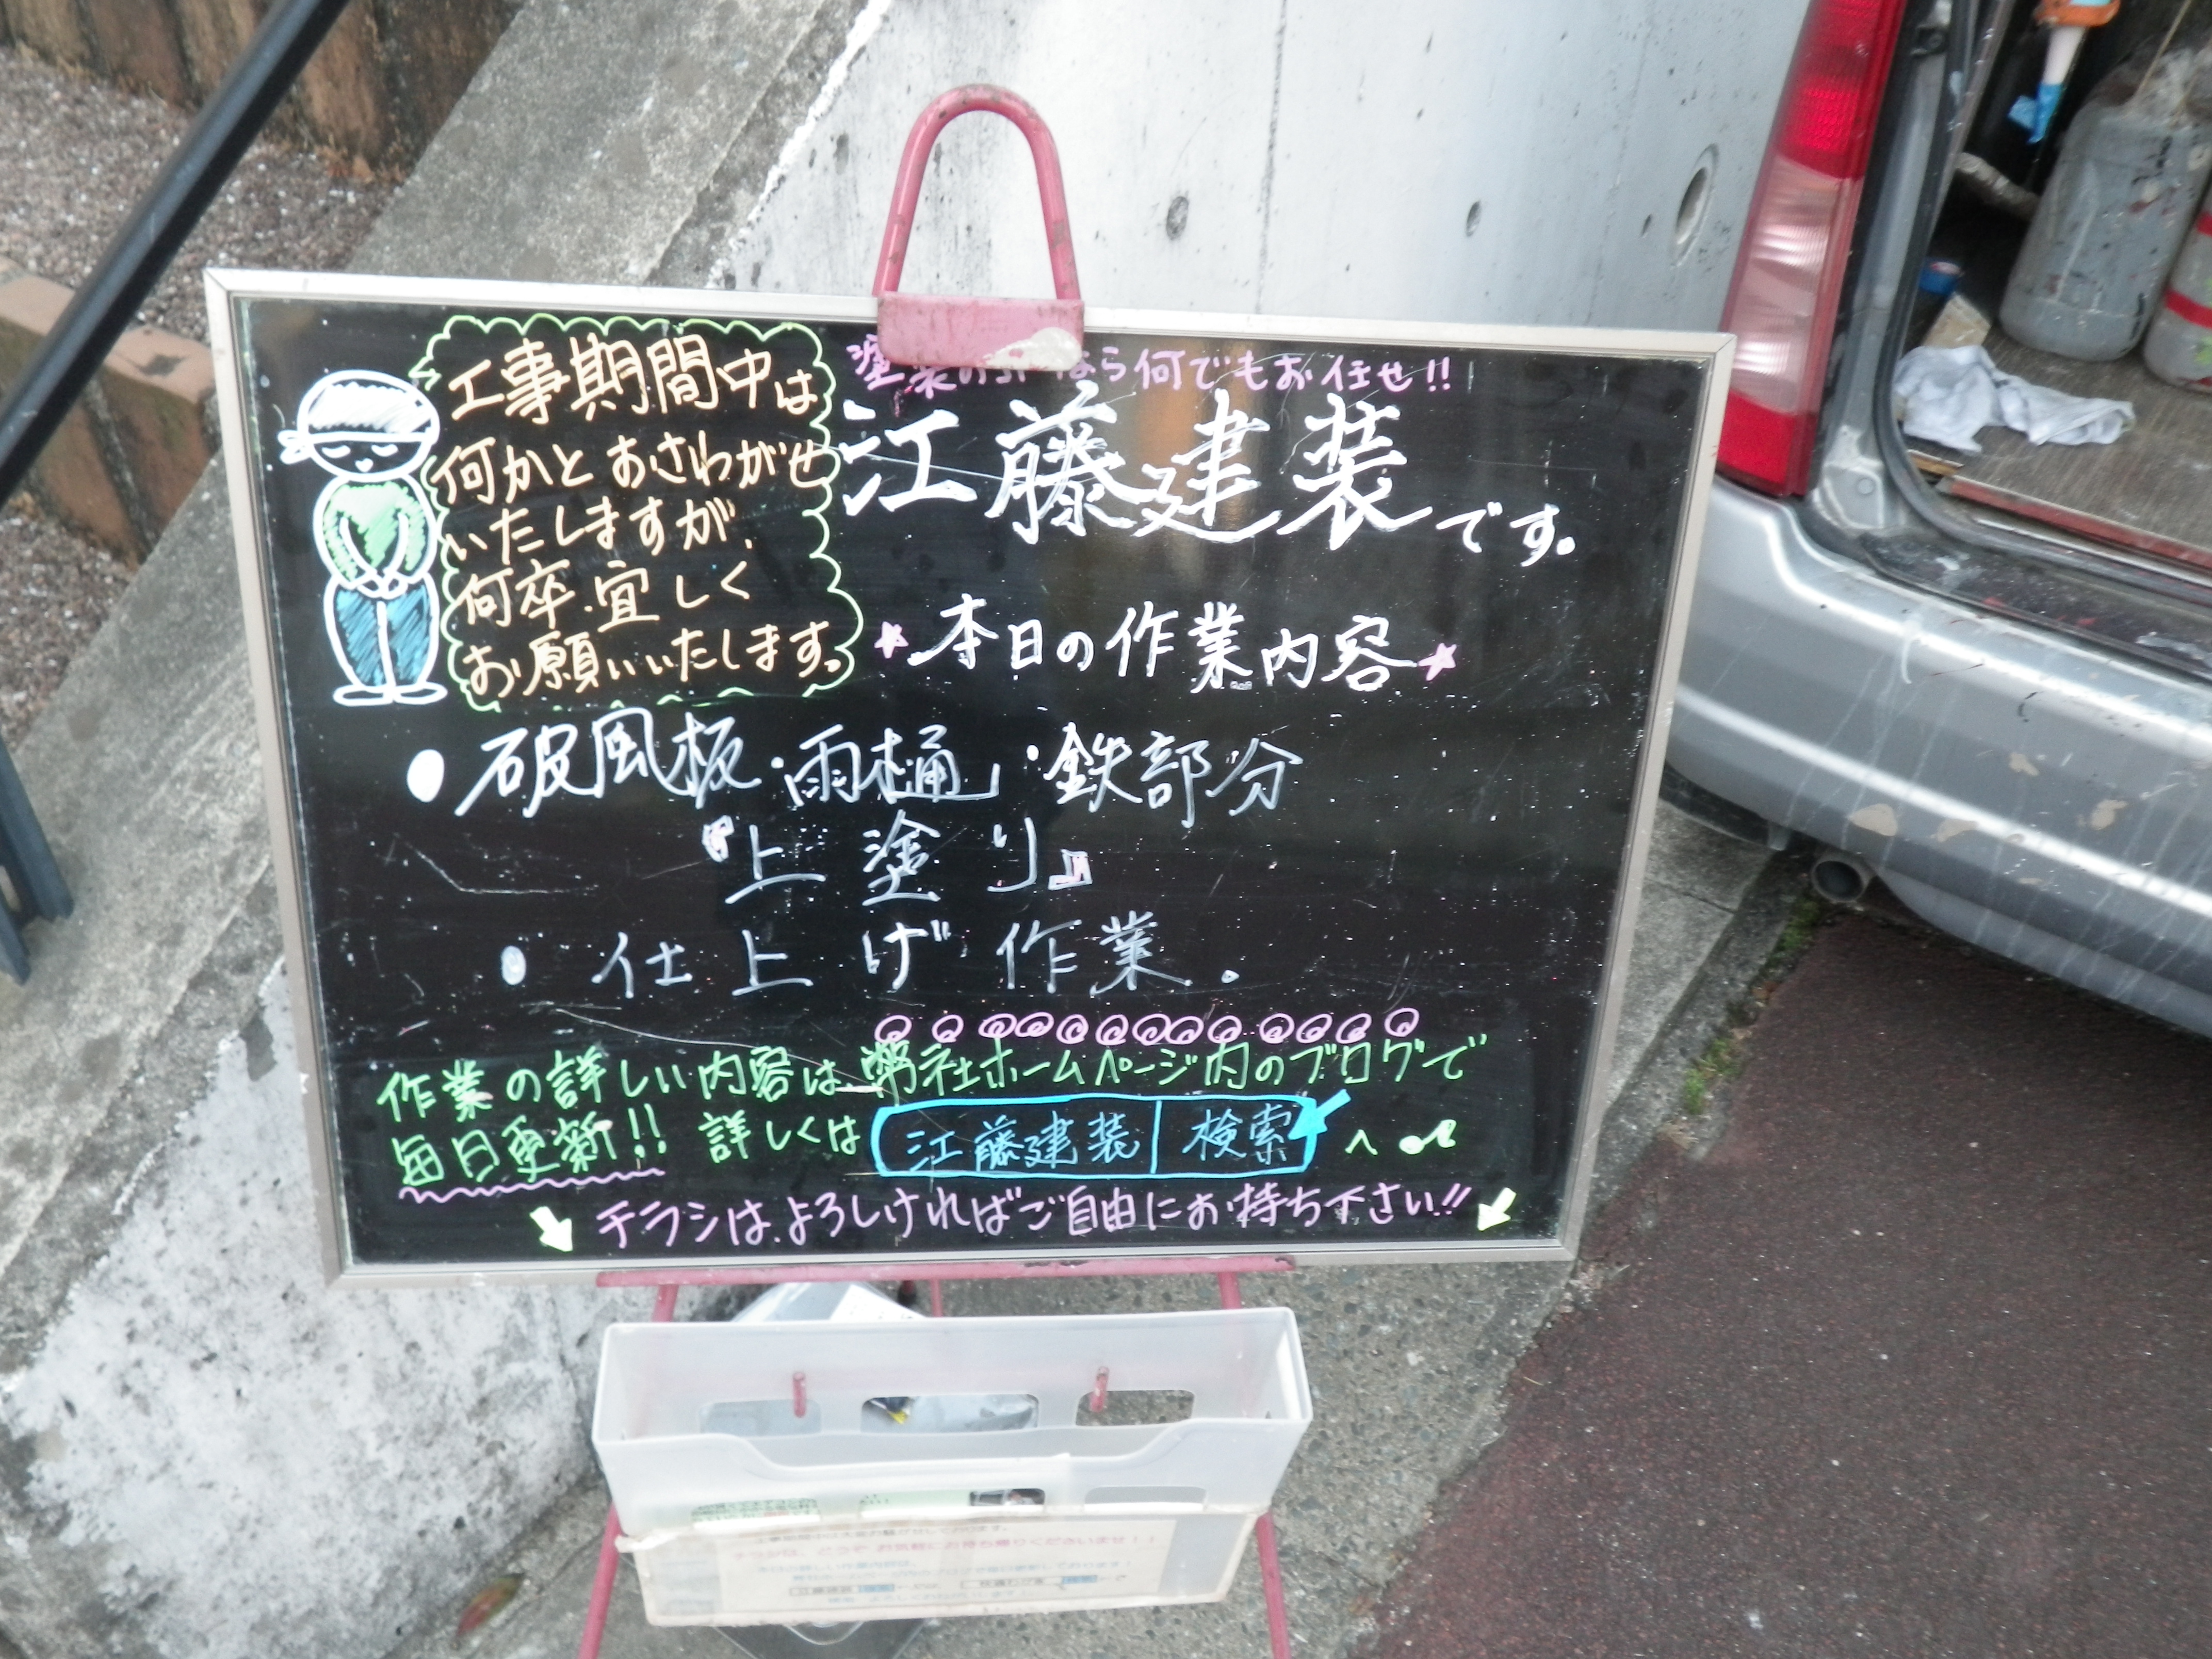 工事期間中は
何かとおさわがせ
いたしますが、
何卒、宜しく
お願いいたします。
塗装の なら何でもお任せ!!
江藤建装です。
★本日の作業内容★
●破風板・雨樋・鉄部分
『上塗り』
●仕上げ作業.
作業の詳しい内容は、弊社ホームページ内のブログで
毎日更新!! 詳しくは 江藤建装 検索 へ♪
チラシは、よろしければご自由にお持ち下さい!!